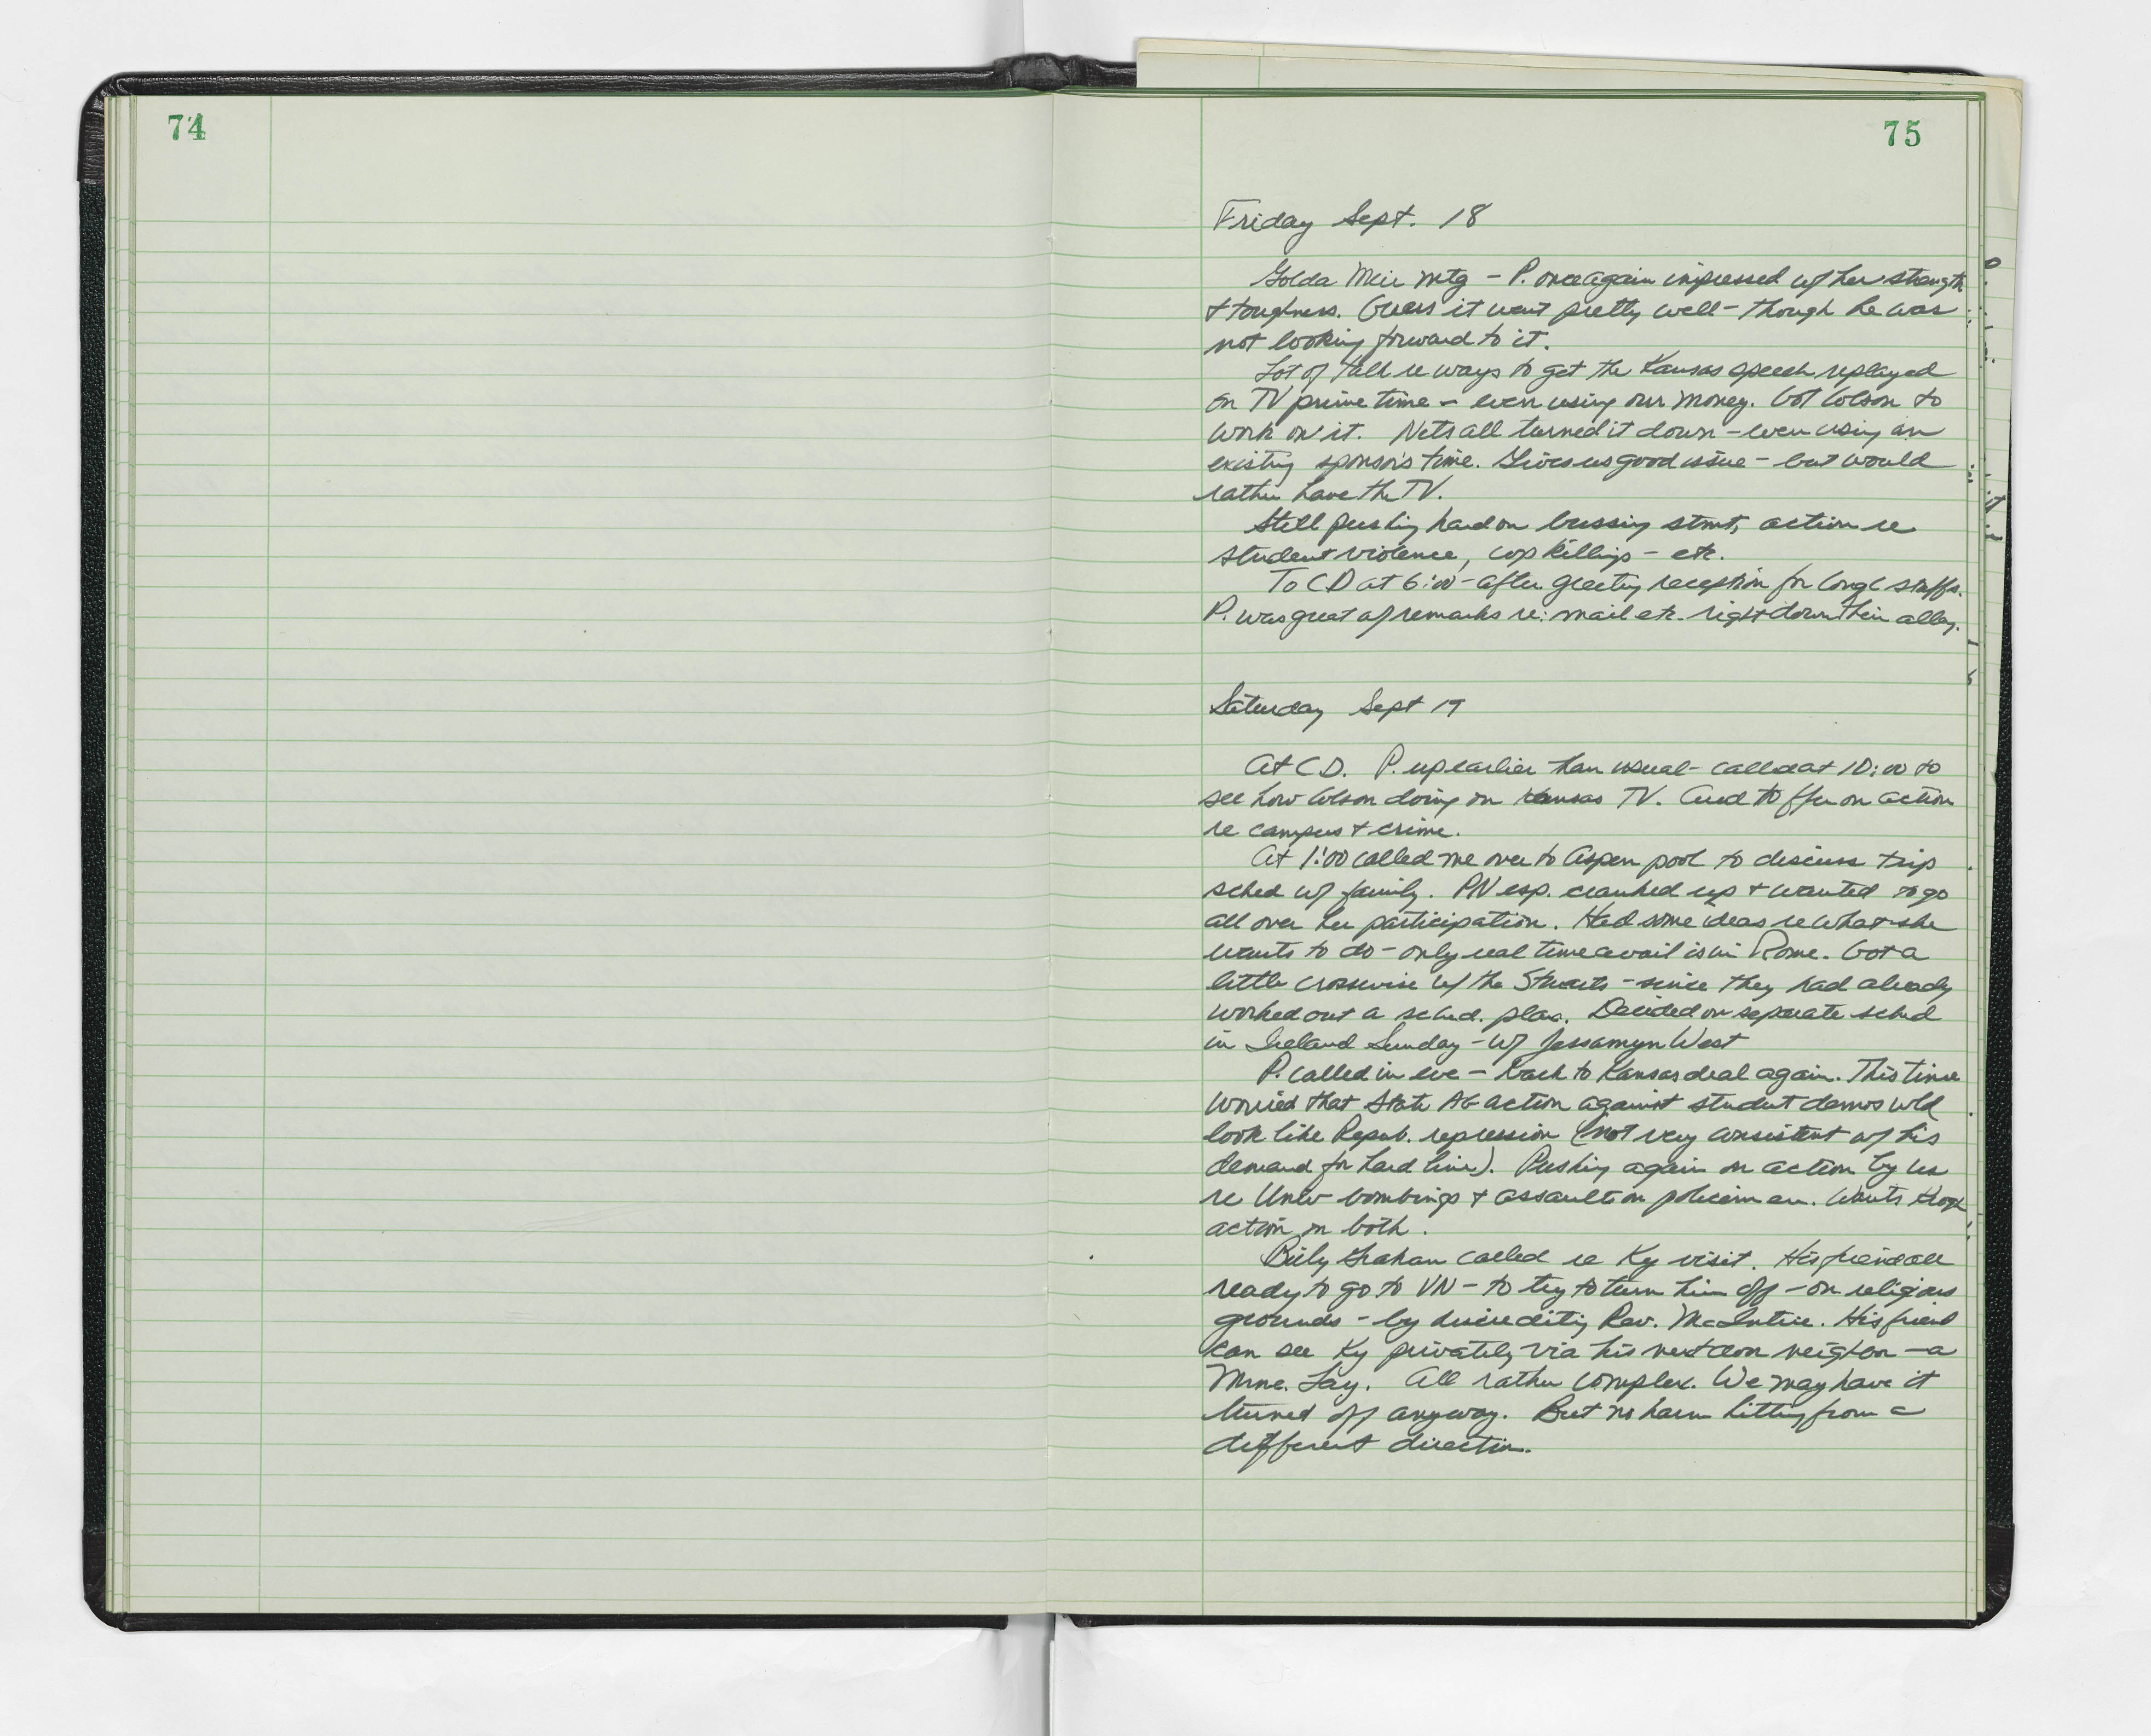 74
75
Friday Sept. 18
Golda Meir mtg - P. once again impressed w/ her strength
& toughness. Guess it went pretty well - though he was
not looking forward to it.
Lot of talk re ways to get the Kansas speech replayed
on TV prime time - even using our money. Got Colson to
work on it. Nets all turned it down - even using an
existing sponsor's time. Gives us good issue - but would
rather have the TV.
Still pushing hard on bussing stmt, action re
student violence, cop killings - etc.
To CD at 6:00 - after greeting reception for Congl staffs.
P. was great w/ remarks re: mail etc. right down their alley.
Saturday Sept 19
At CD. P. up earlier than usual - called at 10:00 to
see how Colson doing on Kansas TV. And to ffu on action
re campus & crime.
At 1:00 called me over to Aspen pool to discuss trip
sched w/ family. PN esp. cranked up & wanted to go
all over her participation. Had some ideas re what she
wants to do - only real time avail is in Rome. Got a
little crosswise w/ the Stuarts - since they had already
worked out a sched. plan. Decided on separate sched
in Ireland Sunday - w/ Jessamyn West
P. called in eve - back to Kansas deal again. This time
worried that State AG action against student demos wld
look like Repub. repression (not very consistent w/ his
demand for hard line). Pushing again on action by us
re Univ bombings & assaults on policemen. Wants
action on both.
Billy Graham called re Ky visit. His friend all
ready to go to VN - to try to turn him off - on religious
grounds - by discrediting Rev. McIntire. His friend
can see Ky privately via his next door neighbor - a
Mme. Lay. All rather complex. We may have it
turned off anyway. But no harm hitting from a
different direction.